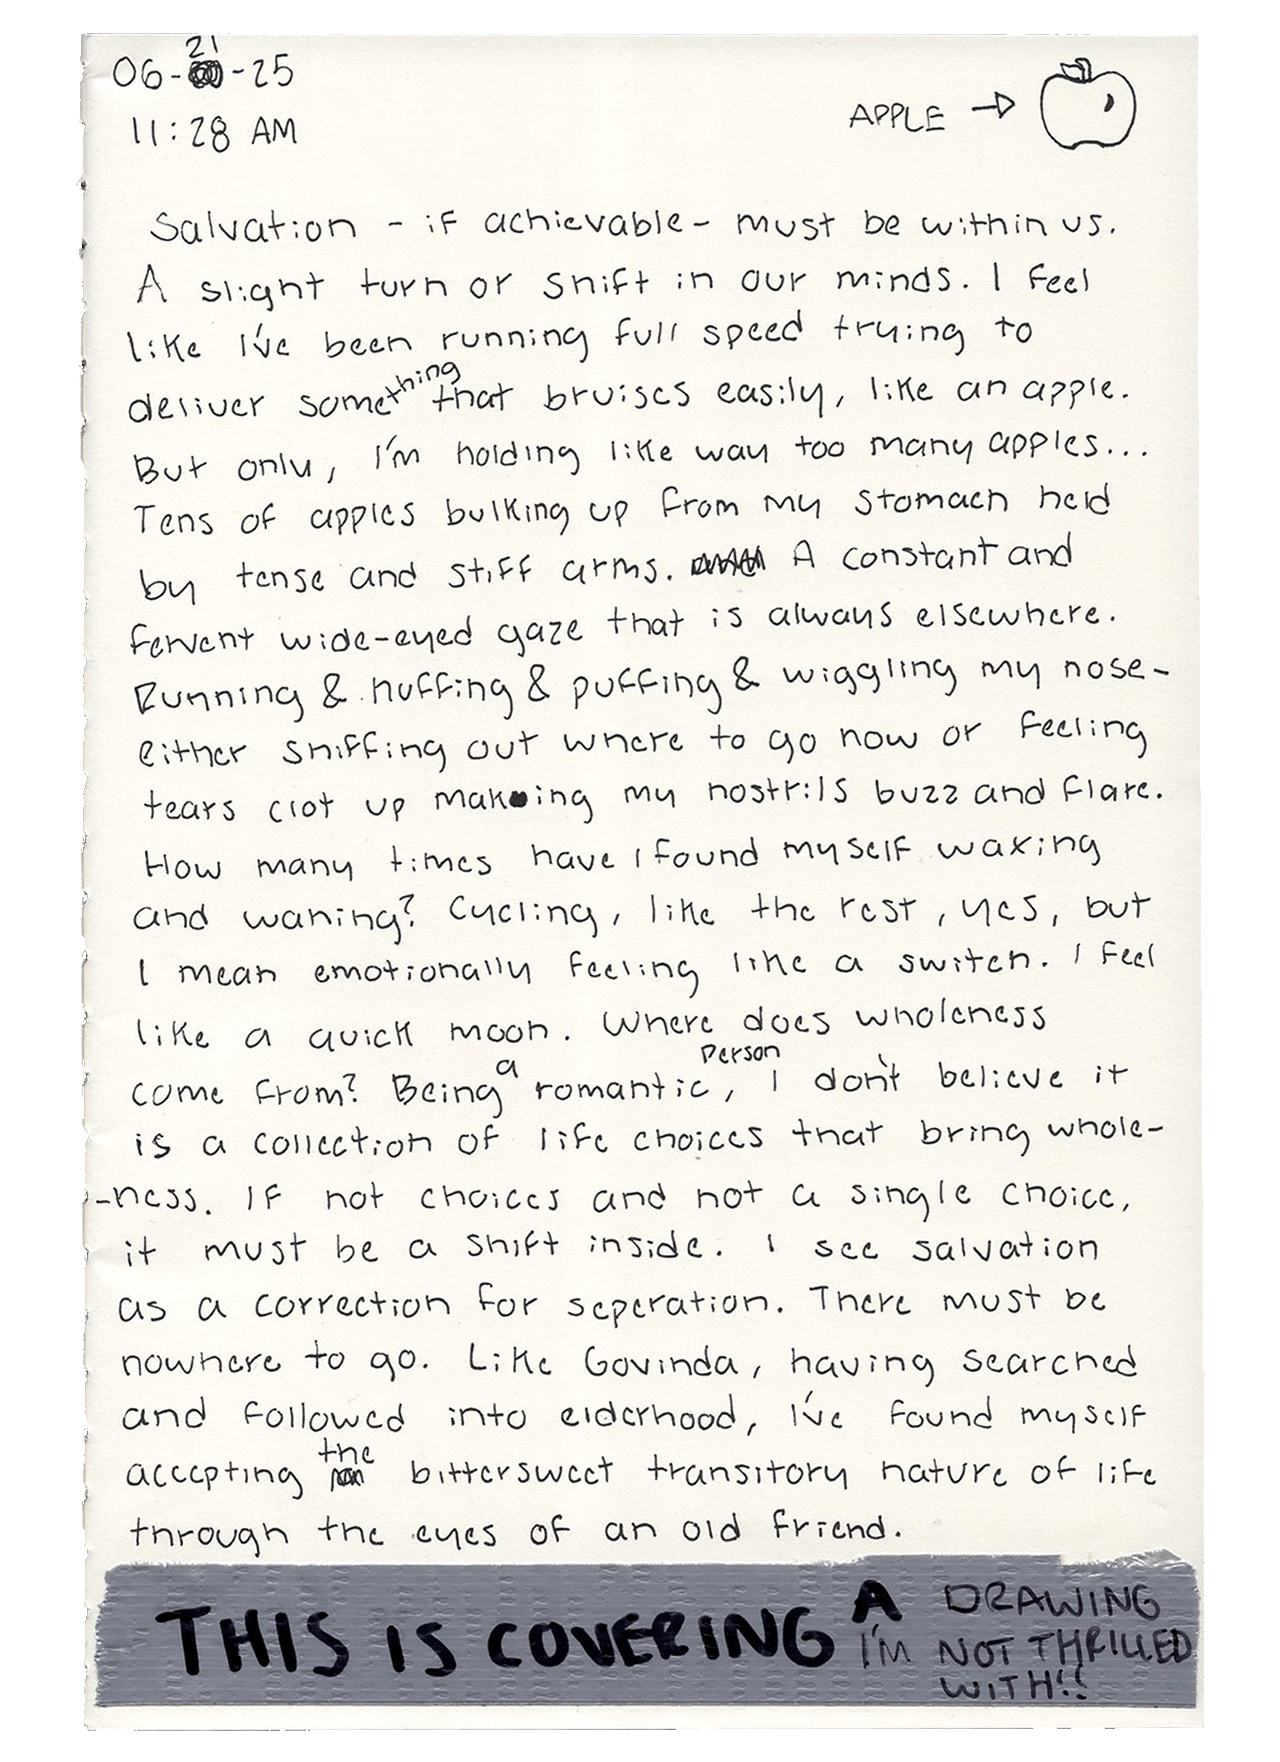 06-21-25
11:28 AM
APPLE →
Salvation - if achievable - must be within us.
A slight turn or shift in our minds. I feel
like I've been running full speed trying to
deliver something that bruises easily, like an apple.
But only, I'm holding like way too many apples...
Tens of apples bulking up from my stomach held
by tense and stiff arms. A constant and
fervent wide-eyed gaze that is always elsewhere.
Running & huffing & puffing & wiggling my nose-
either sniffing out where to go now or feeling
tears clot up making my nostrils buzz and flare.
How many times have I found myself waxing
and waning? Cycling, like the rest, yes, but
I mean emotionally feeling like a switch. I feel
like a quick moon. Where does wholeness
come from? Being a romantic person, I don't believe it
is a collection of life choices that bring whole-
-ness. If not choices and not a single choice,
it must be a shift inside. I see salvation
as a correction for seperation. There must be
nowhere to go. Like Govinda, having searched
and followed into elderhood, I've found myself
accepting the bittersweet transitory nature of life
through the eyes of an old friend.
THIS IS COVERING A DRAWING
I'M NOT THRILLED
WITH!!